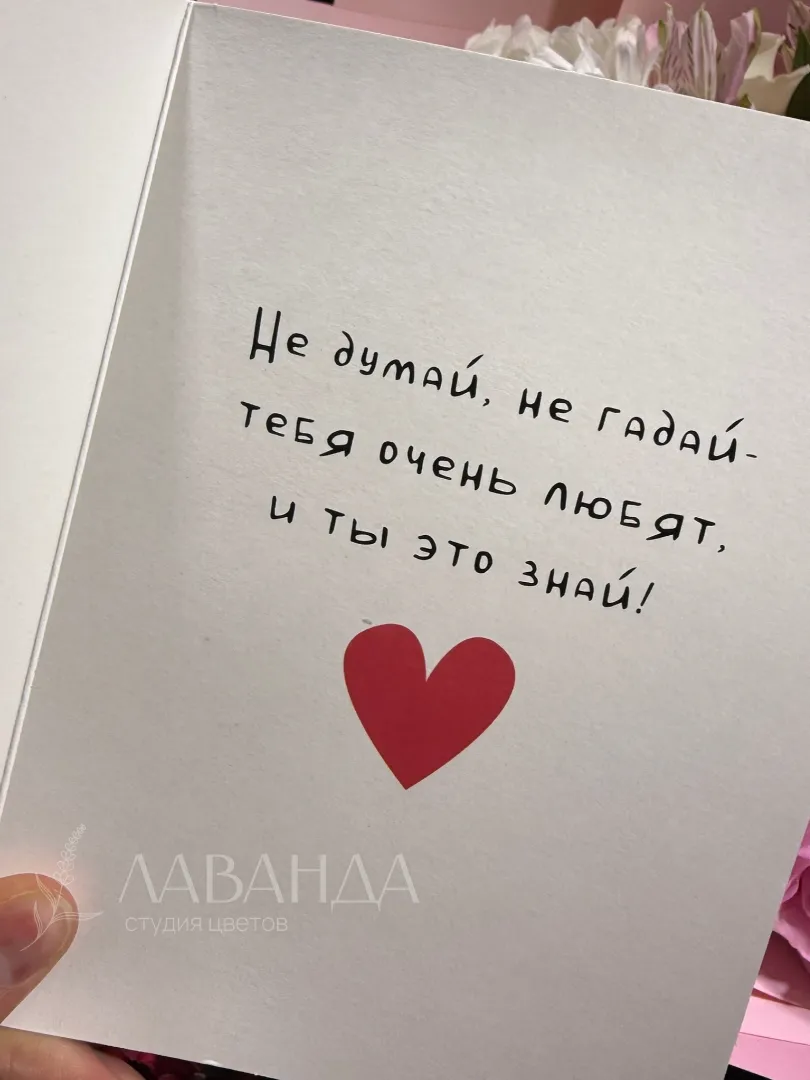 Не думай, не гадай-
тебя очень любят,
и ты это знай!
ЛАВАНДА
студия цветов